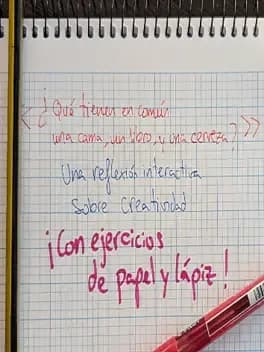 <¿Qué tienen en común
una cama, un libro, y una cerveza?>>
Una reflexión interactiva
sobre creatividad
¡Con ejercicios
de papel y lápiz!